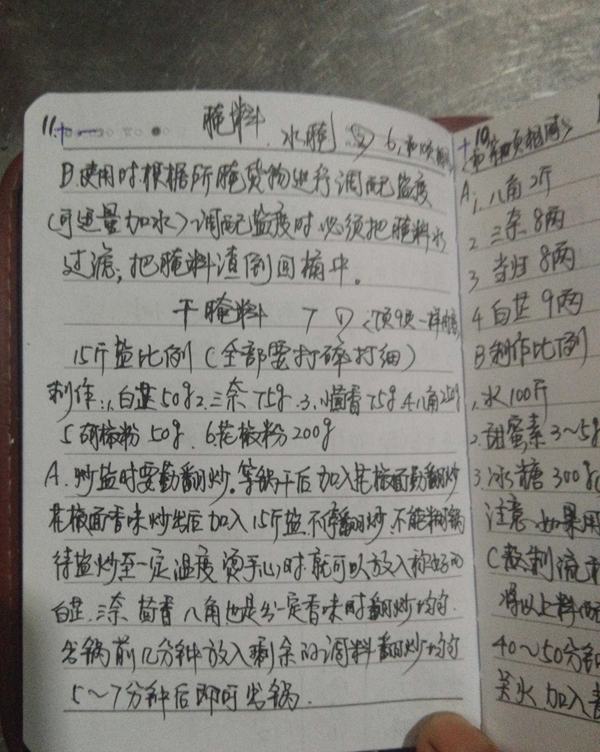 11.十一
腌料.水腌
D.使用时根据所腌货物进行调配盐度
(可适量加水)调配盐度时必须把腌料水
过滤,把腌料渣倒回桶中。
干腌料 7
15斤盐比例(全部要打碎打细)
制作:1.白芷50g 2.三奈75g.3.小茴香75g.4.八角250g
5.胡椒粉50g. 6.花椒粉200g
A.炒盐时要勤翻炒.等锅干后加入花椒面勤翻炒
花椒面香味炒出后加入15斤盐.不停翻炒.不能糊锅
待盐炒至一定温度烫手心时.就可以放入称好的
白芷.三奈.茴香八角也是出一定香味时翻炒均匀.
出锅前几分钟放入剩余的调料翻炒均匀
5~7分钟后即可出锅.
A.
1.八角2斤
2 三奈8两
3 当归8两
4 白芷9两
B制作比例
1.水100斤
2.甜蜜素3~5g
3.冰糖300g
注意.如果用
C熬制流
将以上料
40~50分钟
关火加入